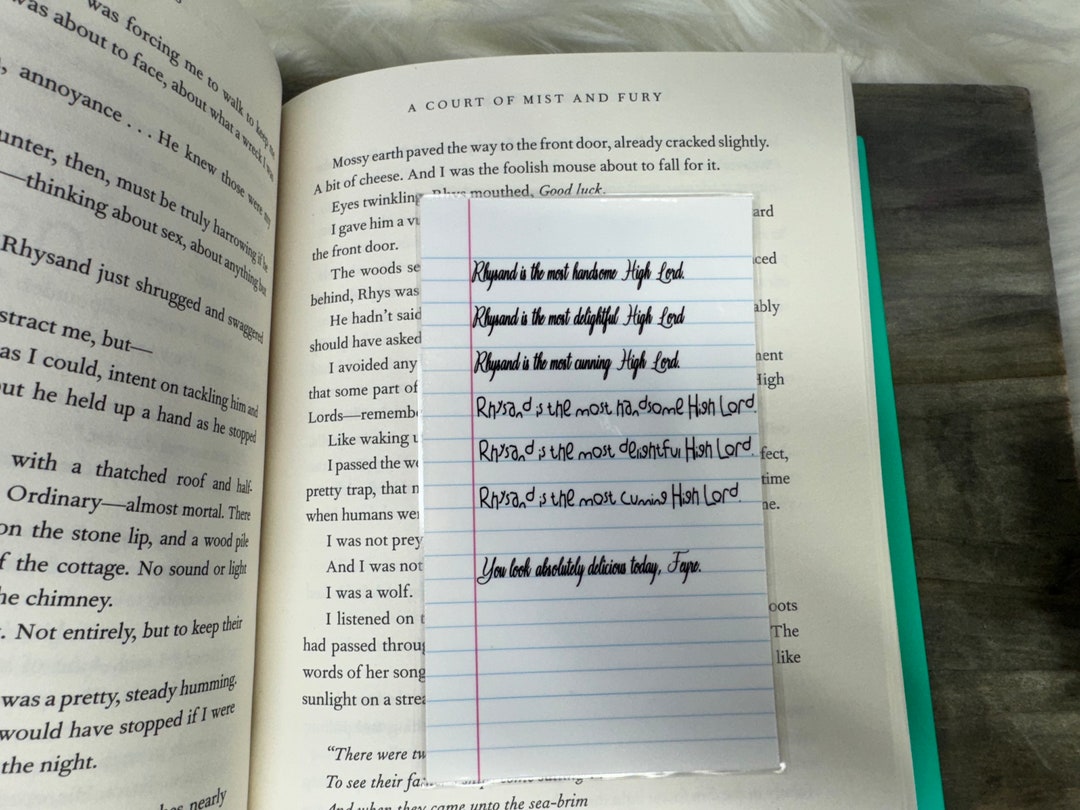 was forcing me to walk to keep me
was about to face, about what a wreck I was
, annoyance . . . He knew those were my
unter, then, must be truly harrowing if he
—thinking about sex, about anything but
Rhysand just shrugged and swaggered
stract me, but—
as I could, intent on tackling him and
out he held up a hand as he stopped
with a thatched roof and half-
Ordinary—almost mortal. There
on the stone lip, and a wood pile
f the cottage. No sound or light
he chimney.
. Not entirely, but to keep their
was a pretty, steady humming.
would have stopped if I were
the night.
has nearly
A COURT OF MIST AND FURY
Mossy earth paved the way to the front door, already cracked slightly.
A bit of cheese. And I was the foolish mouse about to fall for it.
Eyes twinkling, Rhys mouthed, Good luck.
I gave him a vu ard
the front door.
The woods se ced
behind, Rhys was
He hadn't said ably
should have asked
I avoided any ment
that some part of High
Lords—remembe
Like waking u
I passed the we fect,
pretty trap, that n time
when humans wer ne.
I was not prey
And I was not
I was a wolf.
I listened on t oots
had passed throug The
words of her song like
sunlight on a strea
"There were tw
To see their fa
And when they came unto the sea-brim
Rhysand is the most handsome High Lord.
Rhysand is the most delightful High Lord
Rhysand is the most cunning High Lord.
Rhysand is the most handsome High Lord.
Rhysand is the most delightful High Lord.
Rhysand is the most cunning High Lord.
You look absolutely delicious today, Feyre.